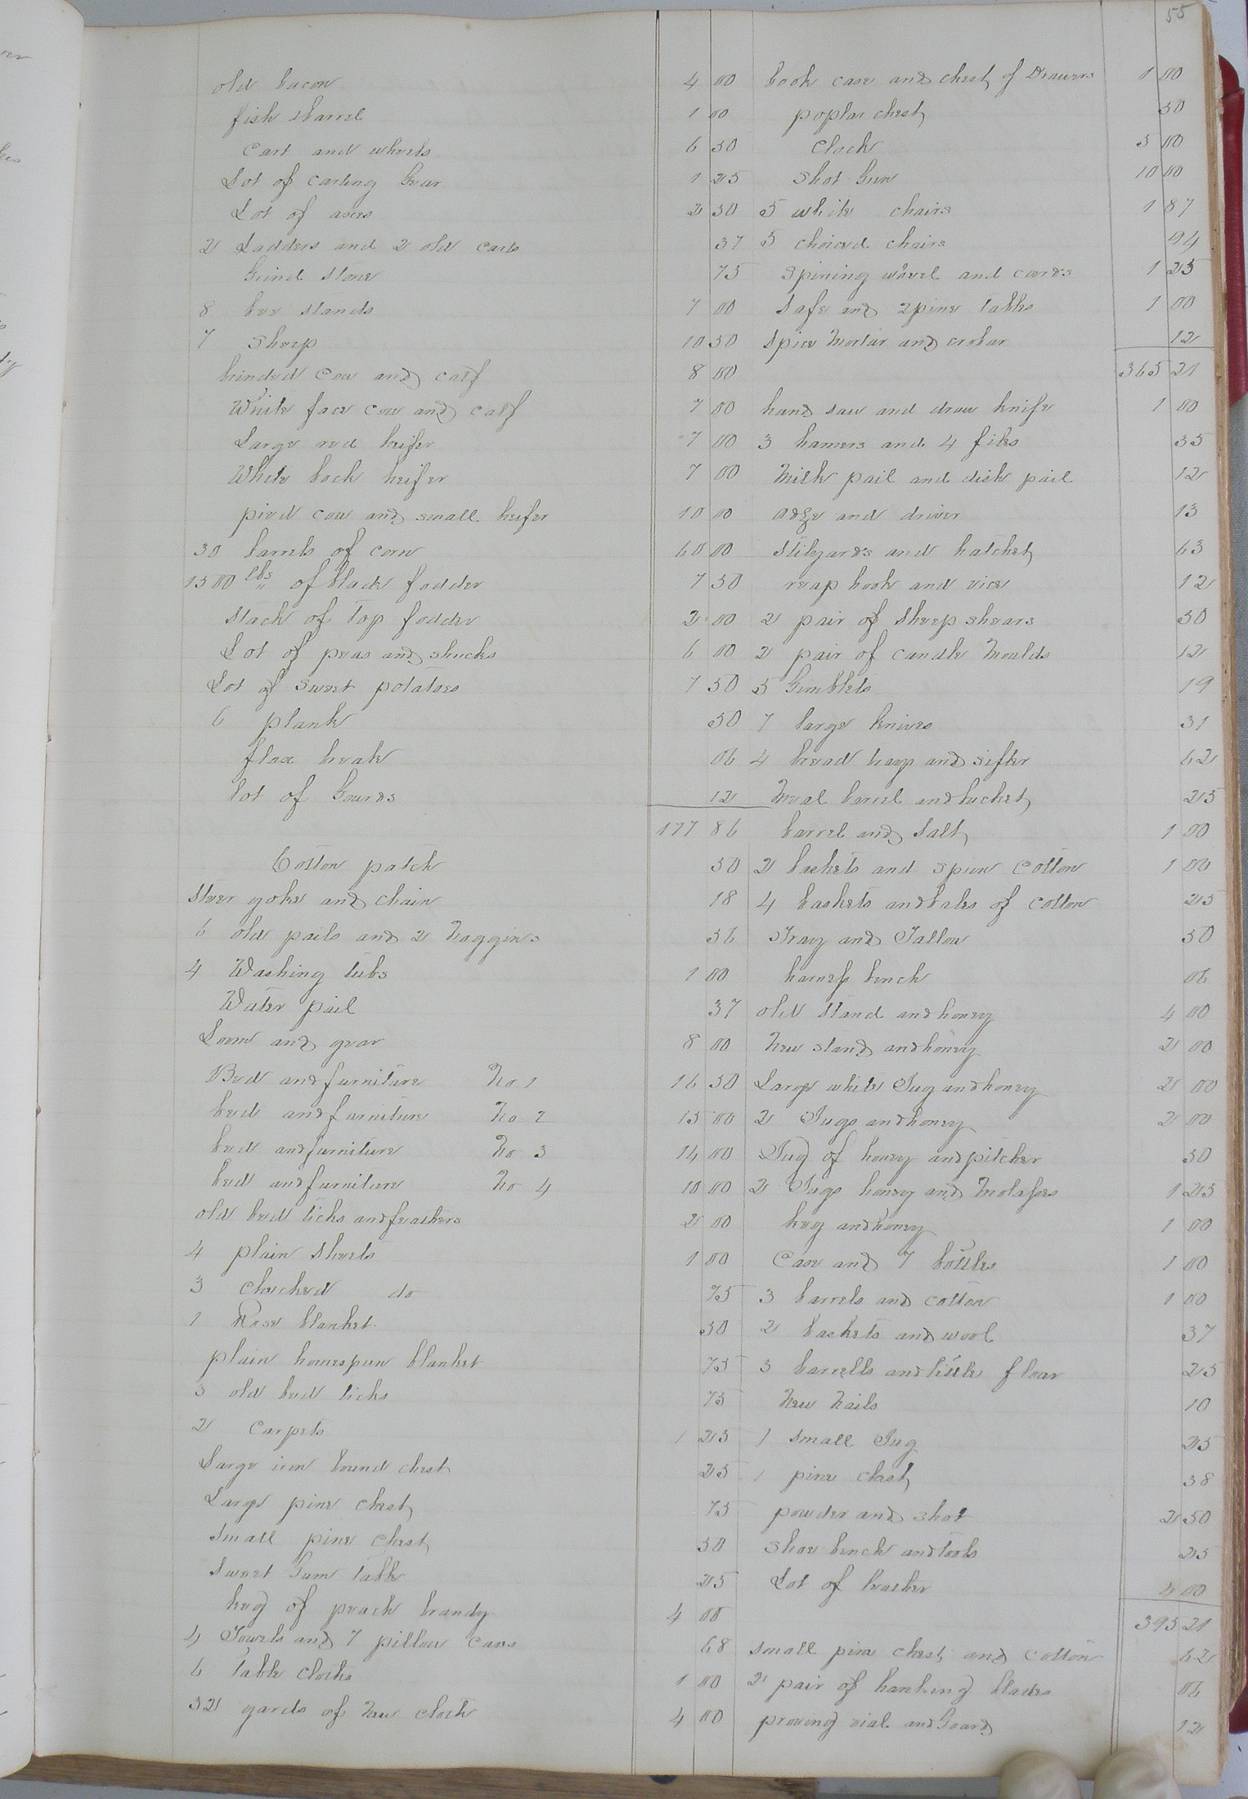 55
old bacon 4 00
fish & barrel 1 00
Cart and wheels 6 50
Lot of carting Gear 1 25
Lot of axes 2 50
2 Ladders and 2 old carts 37
Grind Stone 75
8 bee stands 7 00
7 Sheep 10 50
brinded Cow and calf 8 00
White face cow and calf 7 00
Large red heifer 7 00
White back heifer 7 00
pied cow and small heifer 10 00
30 barrels of corn 60 00
1500 lbs of blade fodder 7 50
stack of top fodder 2 00
Lot of peas and shucks 6 00
Lot of Sweet potatoes 7 50
6 plank 50
flax brake 06
lot of Gourds 12
177 86
Cotton patch 50
steer yoke and chain 18
6 old pails and 2 Noggins 56
4 Washing tubs 1 00
Water pail 37
Loom and gear 8 00
Bed and furniture No 1 16 50
bed and furniture No 2 15 00
bed and furniture No 3 14 00
bed and furniture No 4 10 00
old bed ticks and feathers 2 00
4 plain Sheets 1 00
3 checked do 75
1 Rose blanket 50
plain homespun blanket 75
3 old bed ticks 75
2 Carpets 1 25
Large iron bound chest 25
Large pine chest 75
Small pine Chest 50
Sweet Gum table 25
keg of peach brandy 4 00
4 Towels and 7 pillow cases 68
6 table cloths 1 00
32 yards of new cloth 4 00
book case and chest of Drawers 1 00
poplar chest 50
Clock 5 00
Shot Gun 10 00
5 white chairs 1 87
5 chaired chairs 94
Spining wheel and cards 1 25
Safe and 2 pine tables 1 00
Spice Mortar and crobar 12
365 21
hand saw and draw knife 1 00
3 hamers and 4 files 35
Milk pail and dish pail 12
adze and driver 13
Stilyards and hatchet 63
reap hook and vice 12
2 pair of Sheep shears 50
2 pair of candle Moulds 12
5 Gimblets 19
7 large knives 31
4 bread tray and sifter 62
Meal barrel and bucket 25
barrel and Salt 1 00
2 baskets and Spun Cotton 1 00
4 baskets and bales of cotton 25
Tray and Tallow 50
harness bench 06
old Stand and honey 4 00
New stand and honey 2 00
Large white Jug and honey 2 00
2 Jugs and honey 2 00
Jug of honey and pitcher 50
2 Jugs honey and Molasses 1 25
keg and honey 1 00
Case and 7 bottles 1 00
3 barrels and cotton 1 00
2 baskets and wool 37
3 barrells and little flour 25
New Nails 10
1 Small Jug 25
1 pine chest 38
powder and shot 2 50
Shoe bench and tools 25
Lot of leather 4 00
395 21
small pine chest and cotton 62
2 pair of harking blades 06
proving vial and Gourd 12